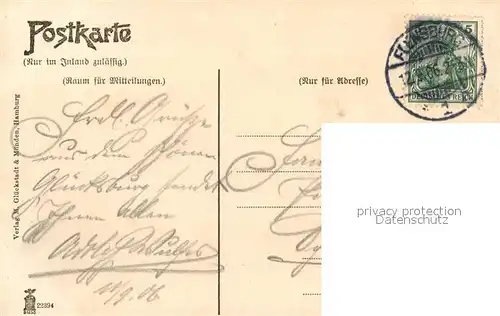 Postkarte
(Nur im Inland zulässig.)
(Raum für Mitteilungen.)
(Nur für Adresse)
FLENSBURG
1
5
Verlag M. Glückstadt & Münden, Hamburg
Frdl. Grüße
aus dem schönen
Glücksburg sendet
Ihnen allen
11/9. 06
22394
privacy protection
Datenschutz